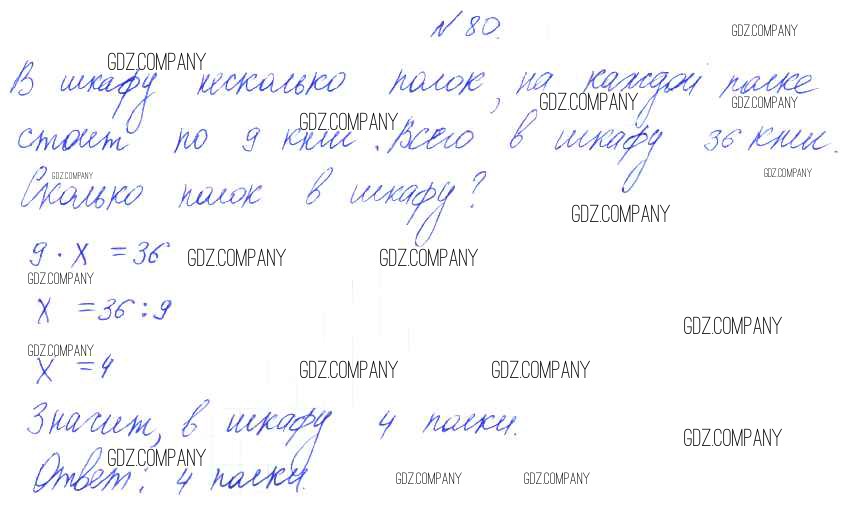 № 80.
GDZ.COMPANY
GDZ.COMPANY
В шкафу несколько полок, на каждой полке
GDZ.COMPANY GDZ.COMPANY
GDZ.COMPANY
стоит по 9 книг. Всего в шкафу 36 книг.
GDZ.COMPANY GDZ.COMPANY
Сколько полок в шкафу?
GDZ.COMPANY
9 · х = 36 GDZ.COMPANY GDZ.COMPANY
GDZ.COMPANY
х = 36 : 9
GDZ.COMPANY
GDZ.COMPANY
х = 4 GDZ.COMPANY GDZ.COMPANY
Значит, в шкафу 4 полки.
GDZ.COMPANY
GDZ.COMPANY
Ответ: 4 полки. GDZ.COMPANY GDZ.COMPANY